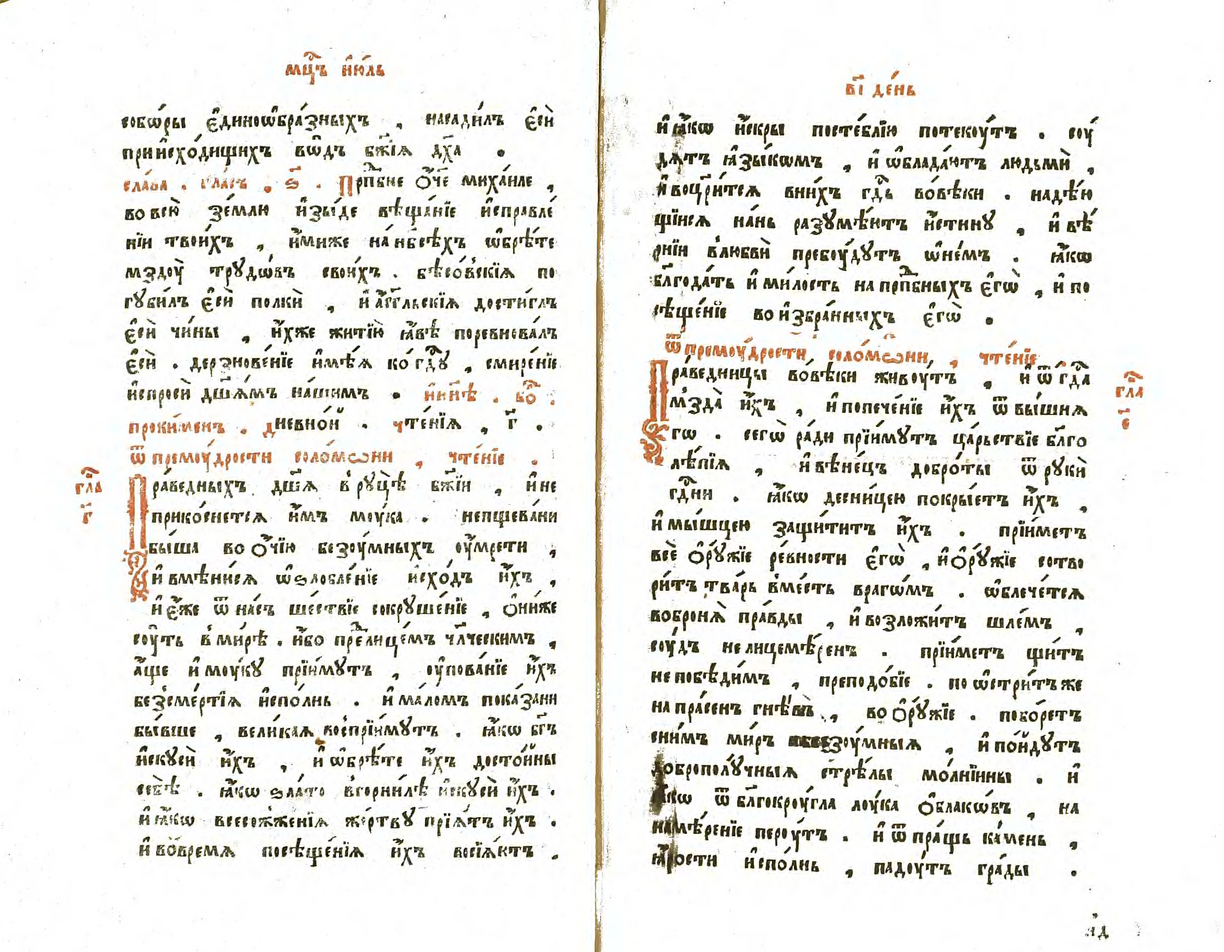 мцⷭ҇ъ і҆ю́ль
собѡ́ры є҆динѡѡбра́зныхъ , насади́лъ є҆сѝ
при и҆схо́дищихъ во́дъ бж҃їѧ дх҃а .
сла́ва . гла́съ , ѕ҃ . Прпⷣбне ѻ҆́ч҃е миха́иле ,
во всю̀ зе́млю и҆зы́де вѣща́нїе и҆справле́
нїи твои́хъ , и҆́миже на нб҃сѣ́хъ ѡ҆брѣ́те
мздоу̀ трꙋдѡ́въ свои́хъ . бѣсо́вскїѧ по
гꙋби́лъ є҆сѝ полкѝ , и҆ а҆́гг҃льскїѧ дости́глъ
є҆сѝ чи́ны , и҆́хже житїю̀ ꙗ҆́вѣ поревнова́лъ
є҆сѝ . дерзнове́нїе и҆мѣ́ѧ ко гдⷭ҇ꙋ , смире́нїе
и҆спросѝ дш҃а́мъ на́шимъ . ны́нѣ . бо҃ :
проки́менъ . дневно́й . чте́нїѧ , г҃ .
ѿ премоу́дрости соломѡни , чте́нїе .
гла́ г҃
Пра́ведныхъ дш҃ѧ в рꙋцѣ̀ бж҃їи , и҆ не
прико́снетсѧ и҆̀мъ моу́ка . непщева́ни
бы́ша во ѻ҆́чїю безоу́мныхъ оу҆мре́ти ,
и҆ вмѣни́сѧ ѡ҆ѕлобле́нїе и҆схо́дъ и҆́хъ ,
и҆ є҆́же ѿ на́съ ше́ствїе сокрꙋше́нїе , ѻ҆ни́же
соу́ть в ми́рѣ . и҆́бо пре́д лице́мъ чл҃ческимъ ,
а҆́ще и҆ моу́кꙋ прїи́мꙋтъ , оу҆пова́нїе и҆́хъ
безсме́ртїѧ и҆спо́лнь . и҆ ма́ломъ показа́ни
бы́вше , вели́каѧ воспрїи́мꙋтъ . ꙗ҆́кѡ бг҃ъ
и҆скꙋсѝ и҆́хъ , и҆ ѡ҆брѣ́те и҆́хъ досто́йны
себѣ̀ . ꙗ҆́кѡ ѕла́то в горни́лѣ и҆скꙋсѝ и҆́хъ .
и҆ ꙗ҆́кѡ всесожже́нїѧ же́ртвꙋ прїѧ́тъ и҆́хъ .
и҆ во вре́мѧ посѣще́нїѧ и҆́хъ восїѧ́ютъ .
в҃і де́нь
и҆ ꙗ҆́кѡ и҆́скры по сте́блїю потекоу́тъ . соу́
дѧтъ ꙗ҆зы́кѡмъ , и҆ ѡ҆блада́ютъ людьмѝ ,
и҆ воцр҃и́тсѧ в ни́хъ гдⷭ҇ь во вѣ́ки . надѣ́ю
щїисѧ на́нь разꙋмѣ́ютъ и҆́стинꙋ , и҆ вѣ́
рнїи в любвѝ пребоу́дꙋтъ ѡ҆ не́мъ . ꙗ҆́кѡ
блг҃ода́ть и҆ ми́лость на прпⷣбныхъ є҆гѡ̀ , и҆ по
сѣще́нїе во и҆збра́нныхъ є҆гѡ̀ .
ѿ премоу́дрости соломѡни , чте́нїе
гла́ є҃
Пра́ведницы во вѣ́ки живоу́тъ , и҆ ѿ гдⷭ҇а
мзда̀ и҆́хъ , и҆ попече́нїе и҆́хъ ѿ вы́шнѧ
гѡ . сегѡ̀ ра́ди прїи́мꙋтъ ца́рьствїе бл҃го
лѣ́пїѧ , и҆ вѣне́цъ добро́ты ѿ рꙋкѝ
гдⷭ҇ни . ꙗ҆́кѡ десни́цею покры́етъ и҆́хъ ,
и҆ мы́шцею защи́титъ и҆́хъ . прїи́метъ
всѐ ѻ҆рꙋ́жїе ре́вности є҆гѡ̀ , и҆ ѻ҆рꙋ́жїе сотво
ри́тъ тва́рь в ме́сть врагѡ́мъ . ѡ҆блече́тсѧ
во бронѧ̀ пра́вды , и҆ возложи́тъ шле́мъ ,
соу́дъ нелицемѣ́ренъ . прїи́метъ щи́тъ
непобѣди́мъ , преподо́бїе . поѡ҆стри́тъ же
напра́сенъ гнѣ́въ , во ѻ҆рꙋ́жїе . побо́ретъ
с ни́мъ ми́ръ на безоу́мныѧ , и҆ по́йдꙋтъ
доброполꙋ́чныѧ стрѣ́лы мо́лнїины . и҆
ꙗ҆́кѡ ѿ бл҃гокроу́гла лоу́ка ѻ҆́блакѡвъ , на
намѣ́ренїе пероу́тъ . и҆ ѿ пра́щь ка́мень ,
ꙗ҆́рости и҆спо́лнь , падоу́тъ гра́ды .